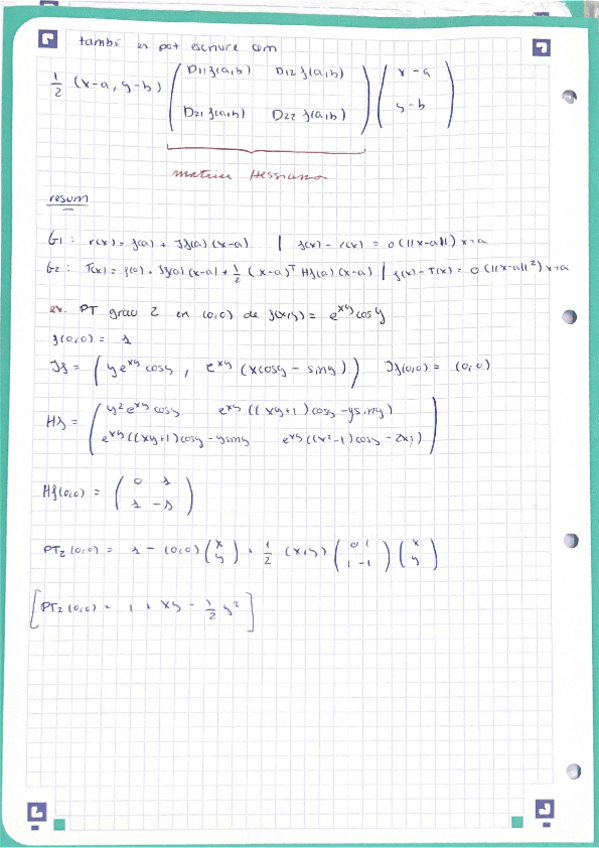 també es pot escriure com
1/2 (x-a, y-b) ( D11 f(a,b) D12 f(a,b) ; D21 f(a,b) D22 f(a,b) ) ( x-a ; y-b )
matriu Hessiana
resum
G1: r(x) = f(a) + Jf(a) (x-a) | f(x) - r(x) = o(||x-a||) x→a
G2: T(x) = f(a) + Jf(a) (x-a) + 1/2 (x-a)^T Hf(a) (x-a) | f(x) - T(x) = o(||x-a||²) x→a
ex. PT grau 2 en (0,0) de f(x,y) = e^xy cos y
f(0,0) = 1
Jf = ( y e^xy cos y , e^xy (x cos y - sin y) ) Jf(0,0) = (0,0)
Hf = ( y² e^xy cos y e^xy ((xy+1) cos y - y sin y) ; e^xy ((xy+1) cos y - y sin y) e^xy ((x²-1) cos y - 2x ) )
Hf(0,0) = ( 0 1 ; 1 -1 )
PT2 (0,0) = 1 - (0,0) ( x ; y ) + 1/2 (x,y) ( 0 1 ; 1 -1 ) ( x ; y )
[ PT2 (0,0) = 1 + xy - 1/2 y² ]